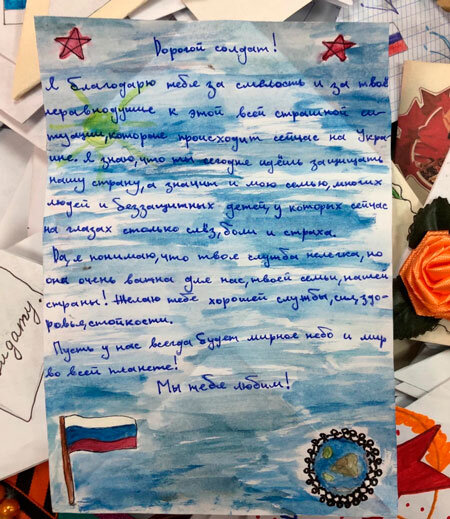 Дорогой солдат!
Я благодарю тебя за смелость и за твоё
неравнодушие к этой всей страшной си-
туации, которые происходит сейчас на Укра-
ине. Я знаю, что ты сегодня идёшь защищать
нашу страну, а значит и мою семью, многих
людей и беззащитных детей, у которых сейчас
на глазах столько слёз, боли и страха.
Да, я понимаю, что твоя служба нелегка, но
она очень важна для нас, твоей семьи, нашей
страны! Желаю тебе хорошей службы, сил, здо-
ровья, стойкости.
Пусть у нас всегда будет мирное небо и мир
во всей планете!
Мы тебя любим!